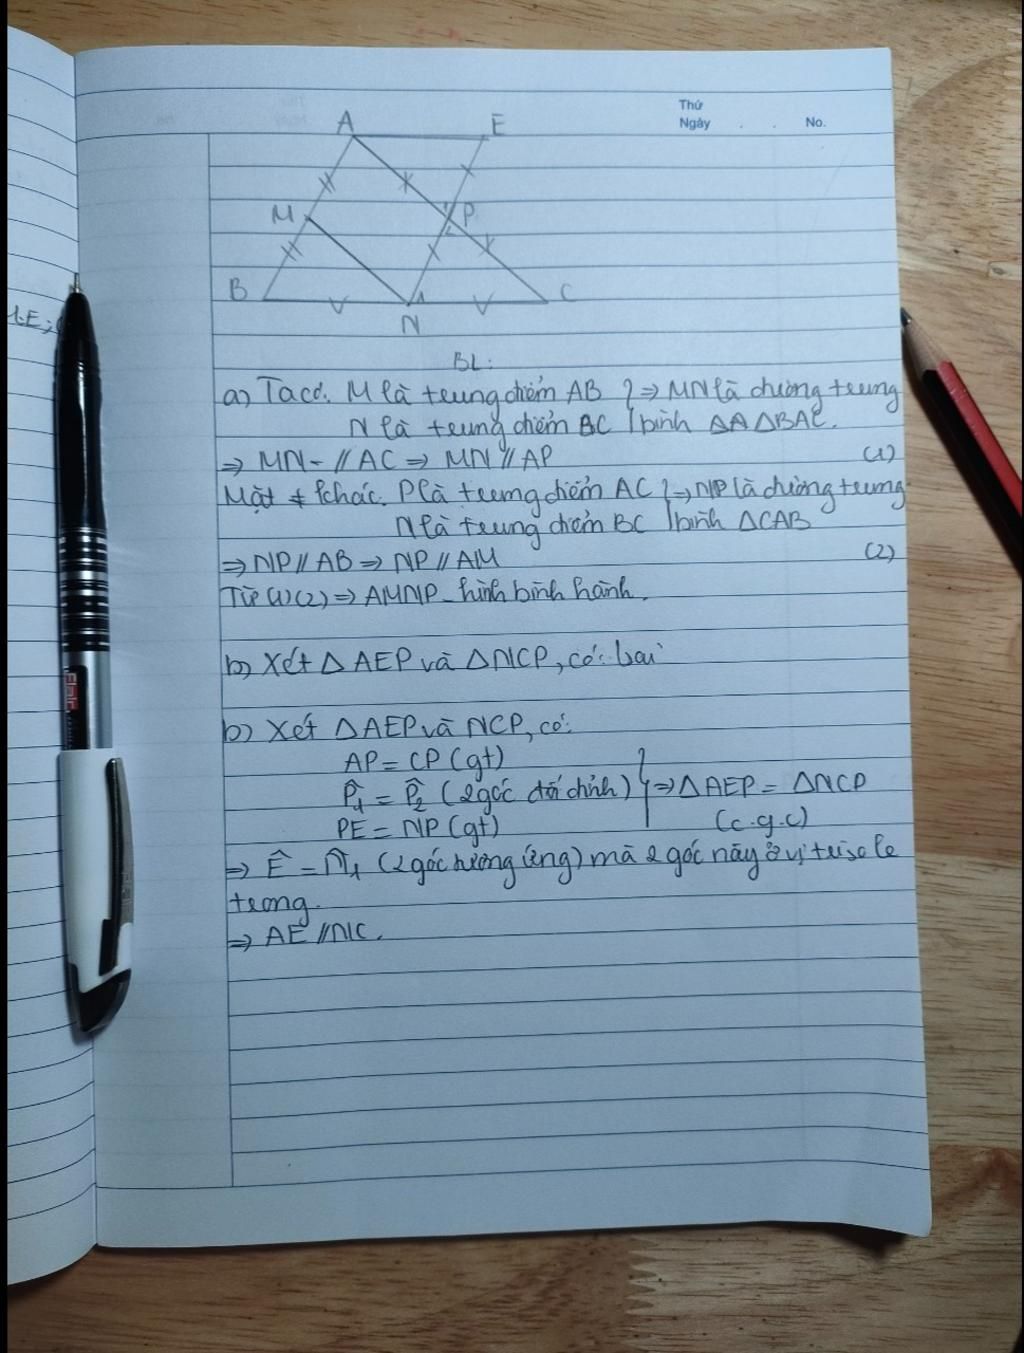 Thứ
Ngày . . No.
A E
M P
B C
N
BL:
a) Ta có: M là trung điểm AB } => MN là đường trung
N là trung điểm BC bình ΔA ΔBAC.
=> MN - // AC => MN // AP (1)
Mặt khác: P là trung điểm AC } => NP là đường trung
N là trung điểm BC bình ΔCAB
=> NP // AB => NP // AM (2)
Từ (1)(2) => AMNP hình bình hành.
b) Xét Δ AEP và ΔNCP, có: hai
b) Xét ΔAEP và NCP, có:
AP = CP (gt)
P̂1 = P̂2 (2 góc đối đỉnh) } => ΔAEP = ΔNCP
PE = NP (gt) (c.g.c)
=> Ê = N̂1 (2 góc tương ứng) mà 2 góc này ở vị trí so le
trong.
=> AE // NC.